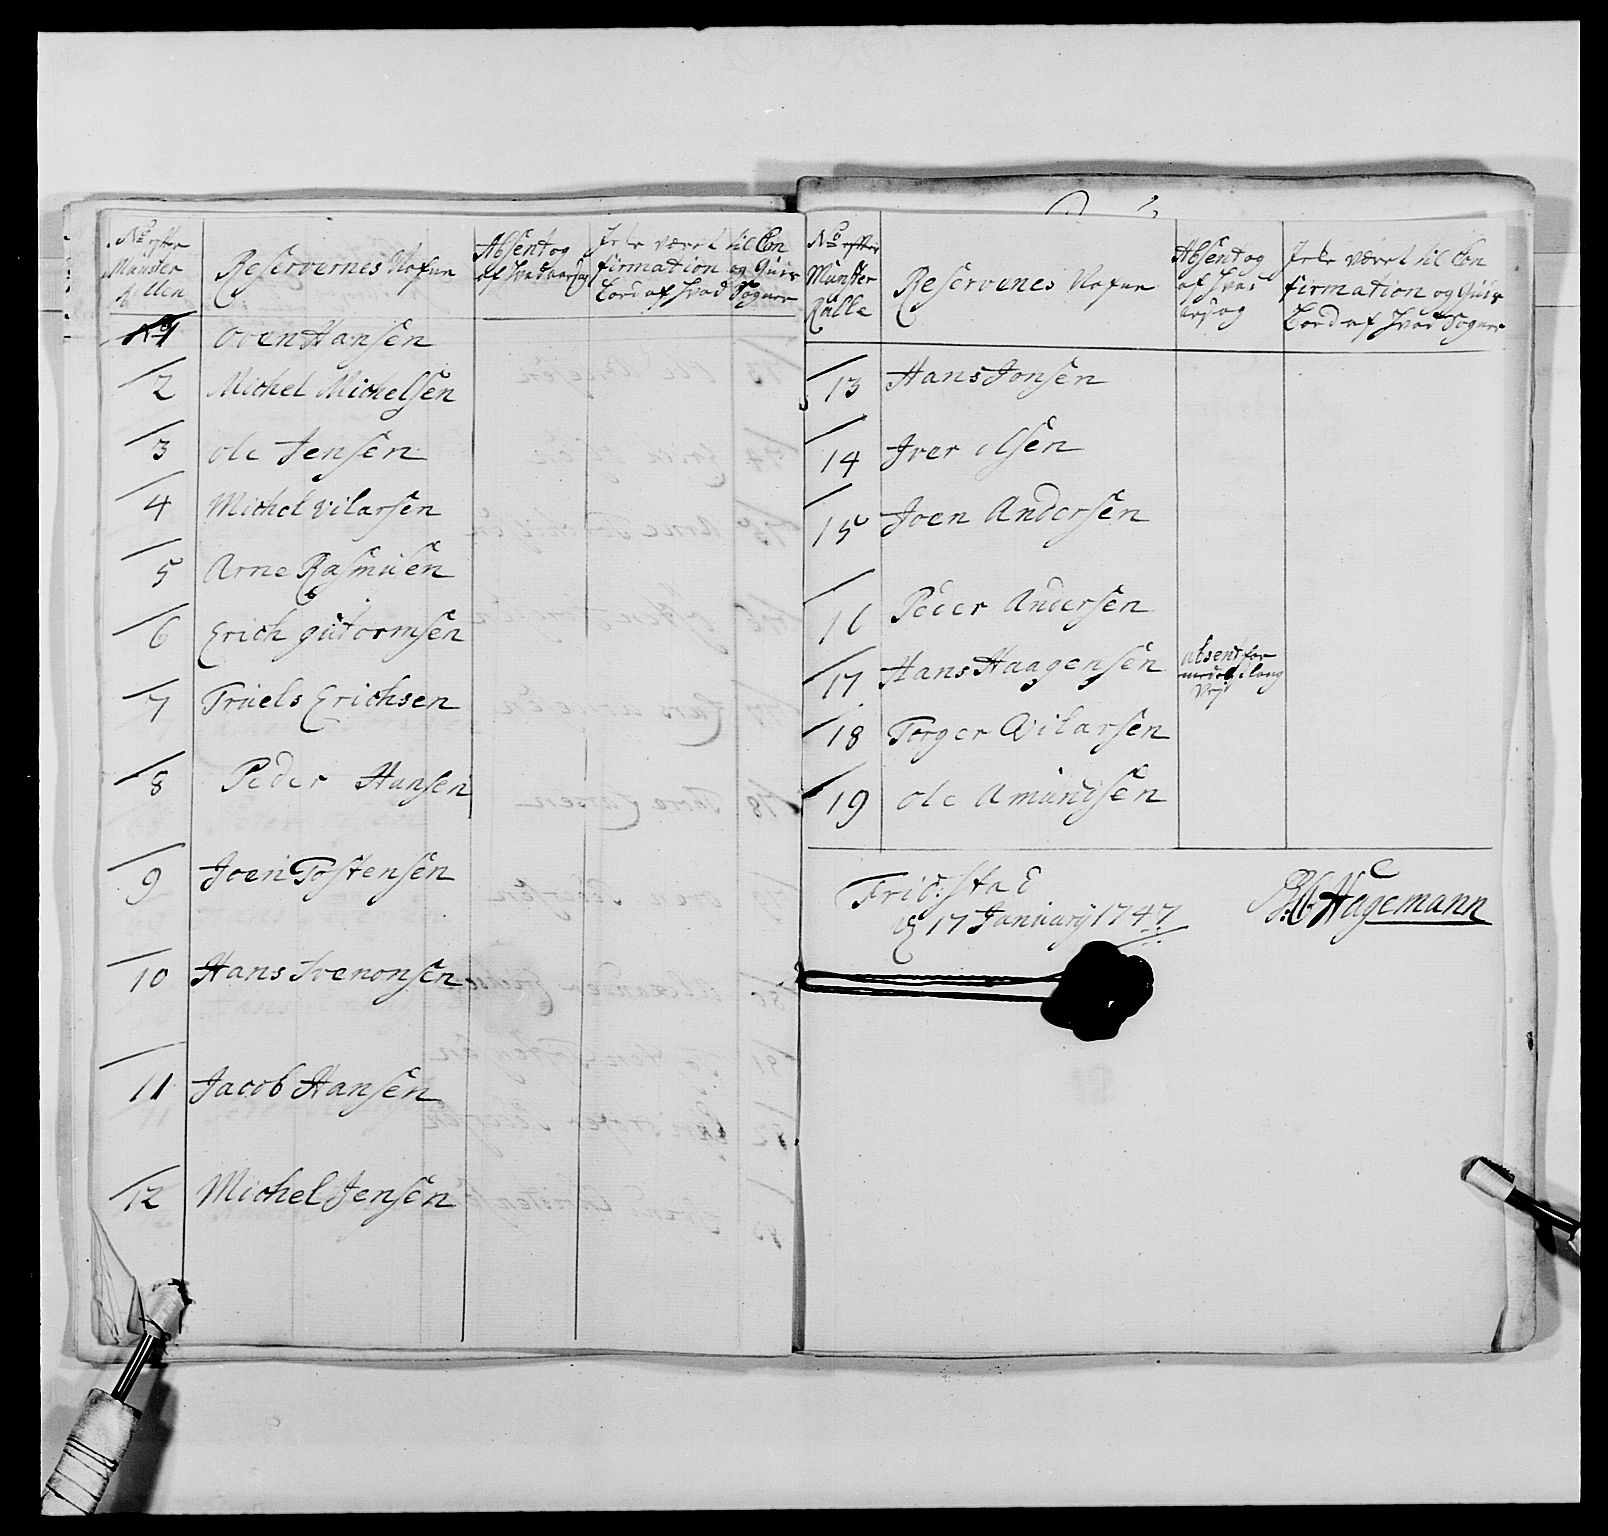 No efter
Munster
Rullen
Reservernes Nafne
Absent og
af hvad aarsag
Icke været til Con
firmation og
af hvad Sogne
No 1 Oven Hansen
2 Michel Michelsen
3 ole Jensen
4 Michel vilarsen
5 Arne Rasmusen
6 Erich gutormsen
7 Truels Erichsen
8 Peder Hansen
9 Joen Tostensen
10 Hans Svenonsen
11 Jacob Hansen
12 Michel Jensen
No efter
Munster
Rulle
Reservenes Nafne
Absent og
af hvad
arsag
Icke været til Con
firmation og
af hvad Sogne
13 Hans Jonsen
14 Iver olsen
15 Joen Andersen
16 Peder Andersen
17 Hans Haagensen absent for
lang
Vej
18 Torger Qvilarsen
19 ole Amundsen
Fridstad
d 17 January 1747
Hagemann